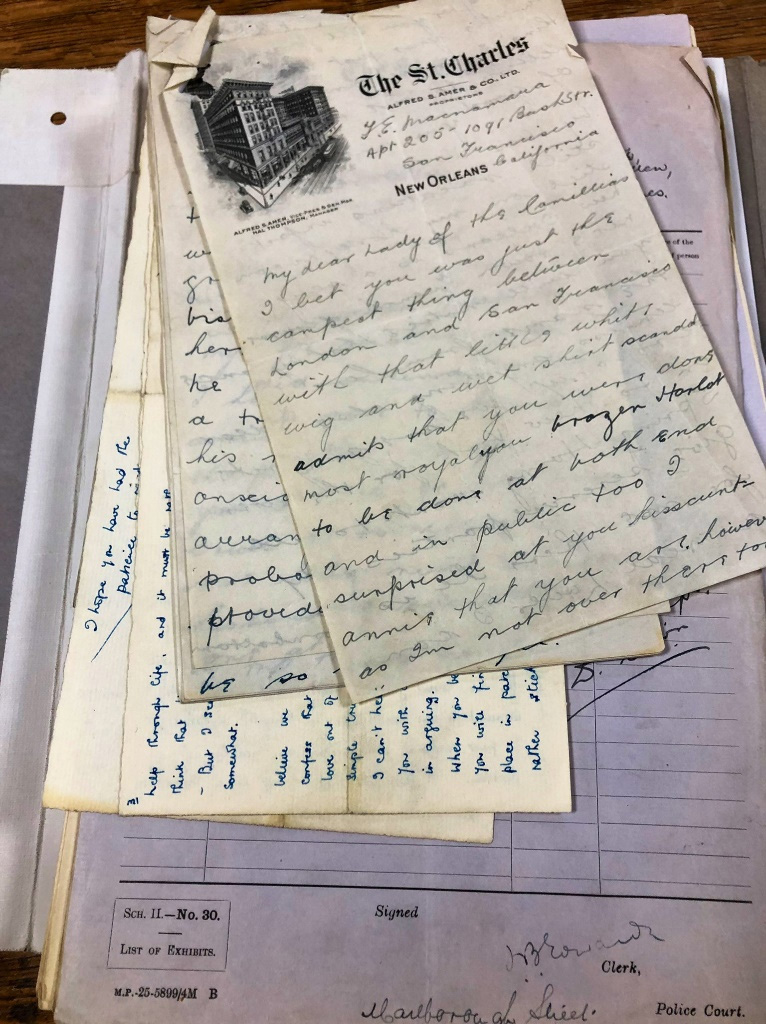 The St. Charles
ALFRED S. AMER & CO. LTD.
PROPRIETORS
Apt 205 - 1091 Bush Str.
San Francisco
California
NEW ORLEANS
ALFRED S. AMER, VICE PRES & GEN MGR
HAL THOMPSON, MANAGER
My dear Lady of the Camillias
I bet you was just the
campest thing between
London and San Francisco
with that little white
wig and wet shirt scanda-
admits that you were done
most royal you brazen Harlot
to be done at both end
and in public too I
surprised at you hisscunt
annis that you are, however
as Im not over there to
w
gr
his
her
he
a tr
his
anscio
arran
proba
provedi
by so
I hope you have had the
patience to
3
help through life, and it must be
think that
- But I se
somewhat.
believe we
confess that
love out of
simple tru
I can't he
you with
in arguing.
When you
you will fin
place in pat
rather stick
of the
person
SCH. II.—No. 30.
LIST OF EXHIBITS.
M.P.-25-5899/4M B
Signed
Clerk,
Marlborough Street.
Police Court.